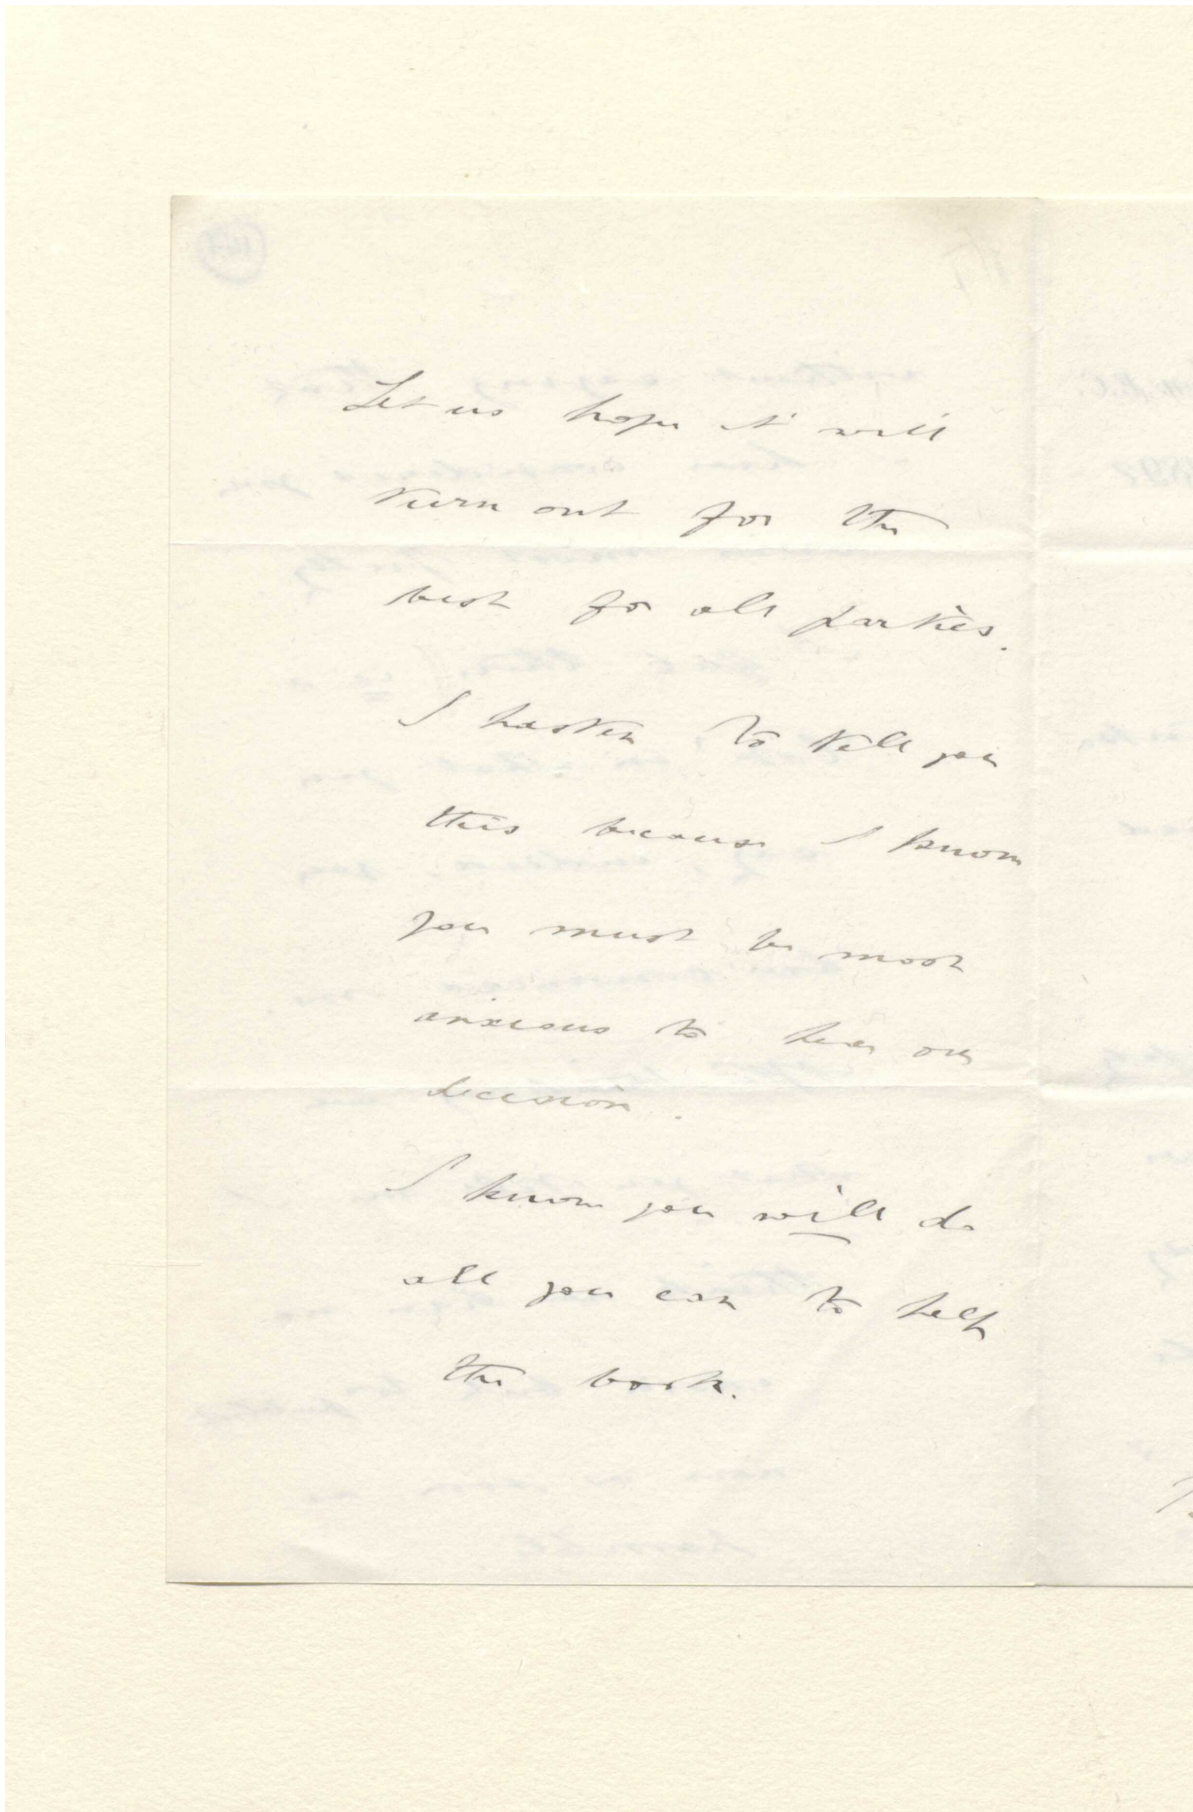 Let us hope it will
turn out for the
best for all parties.
I hasten to tell you
this because I know
you must be most
anxious to hear our
decision.
I know you will do
all you can to help
the book.